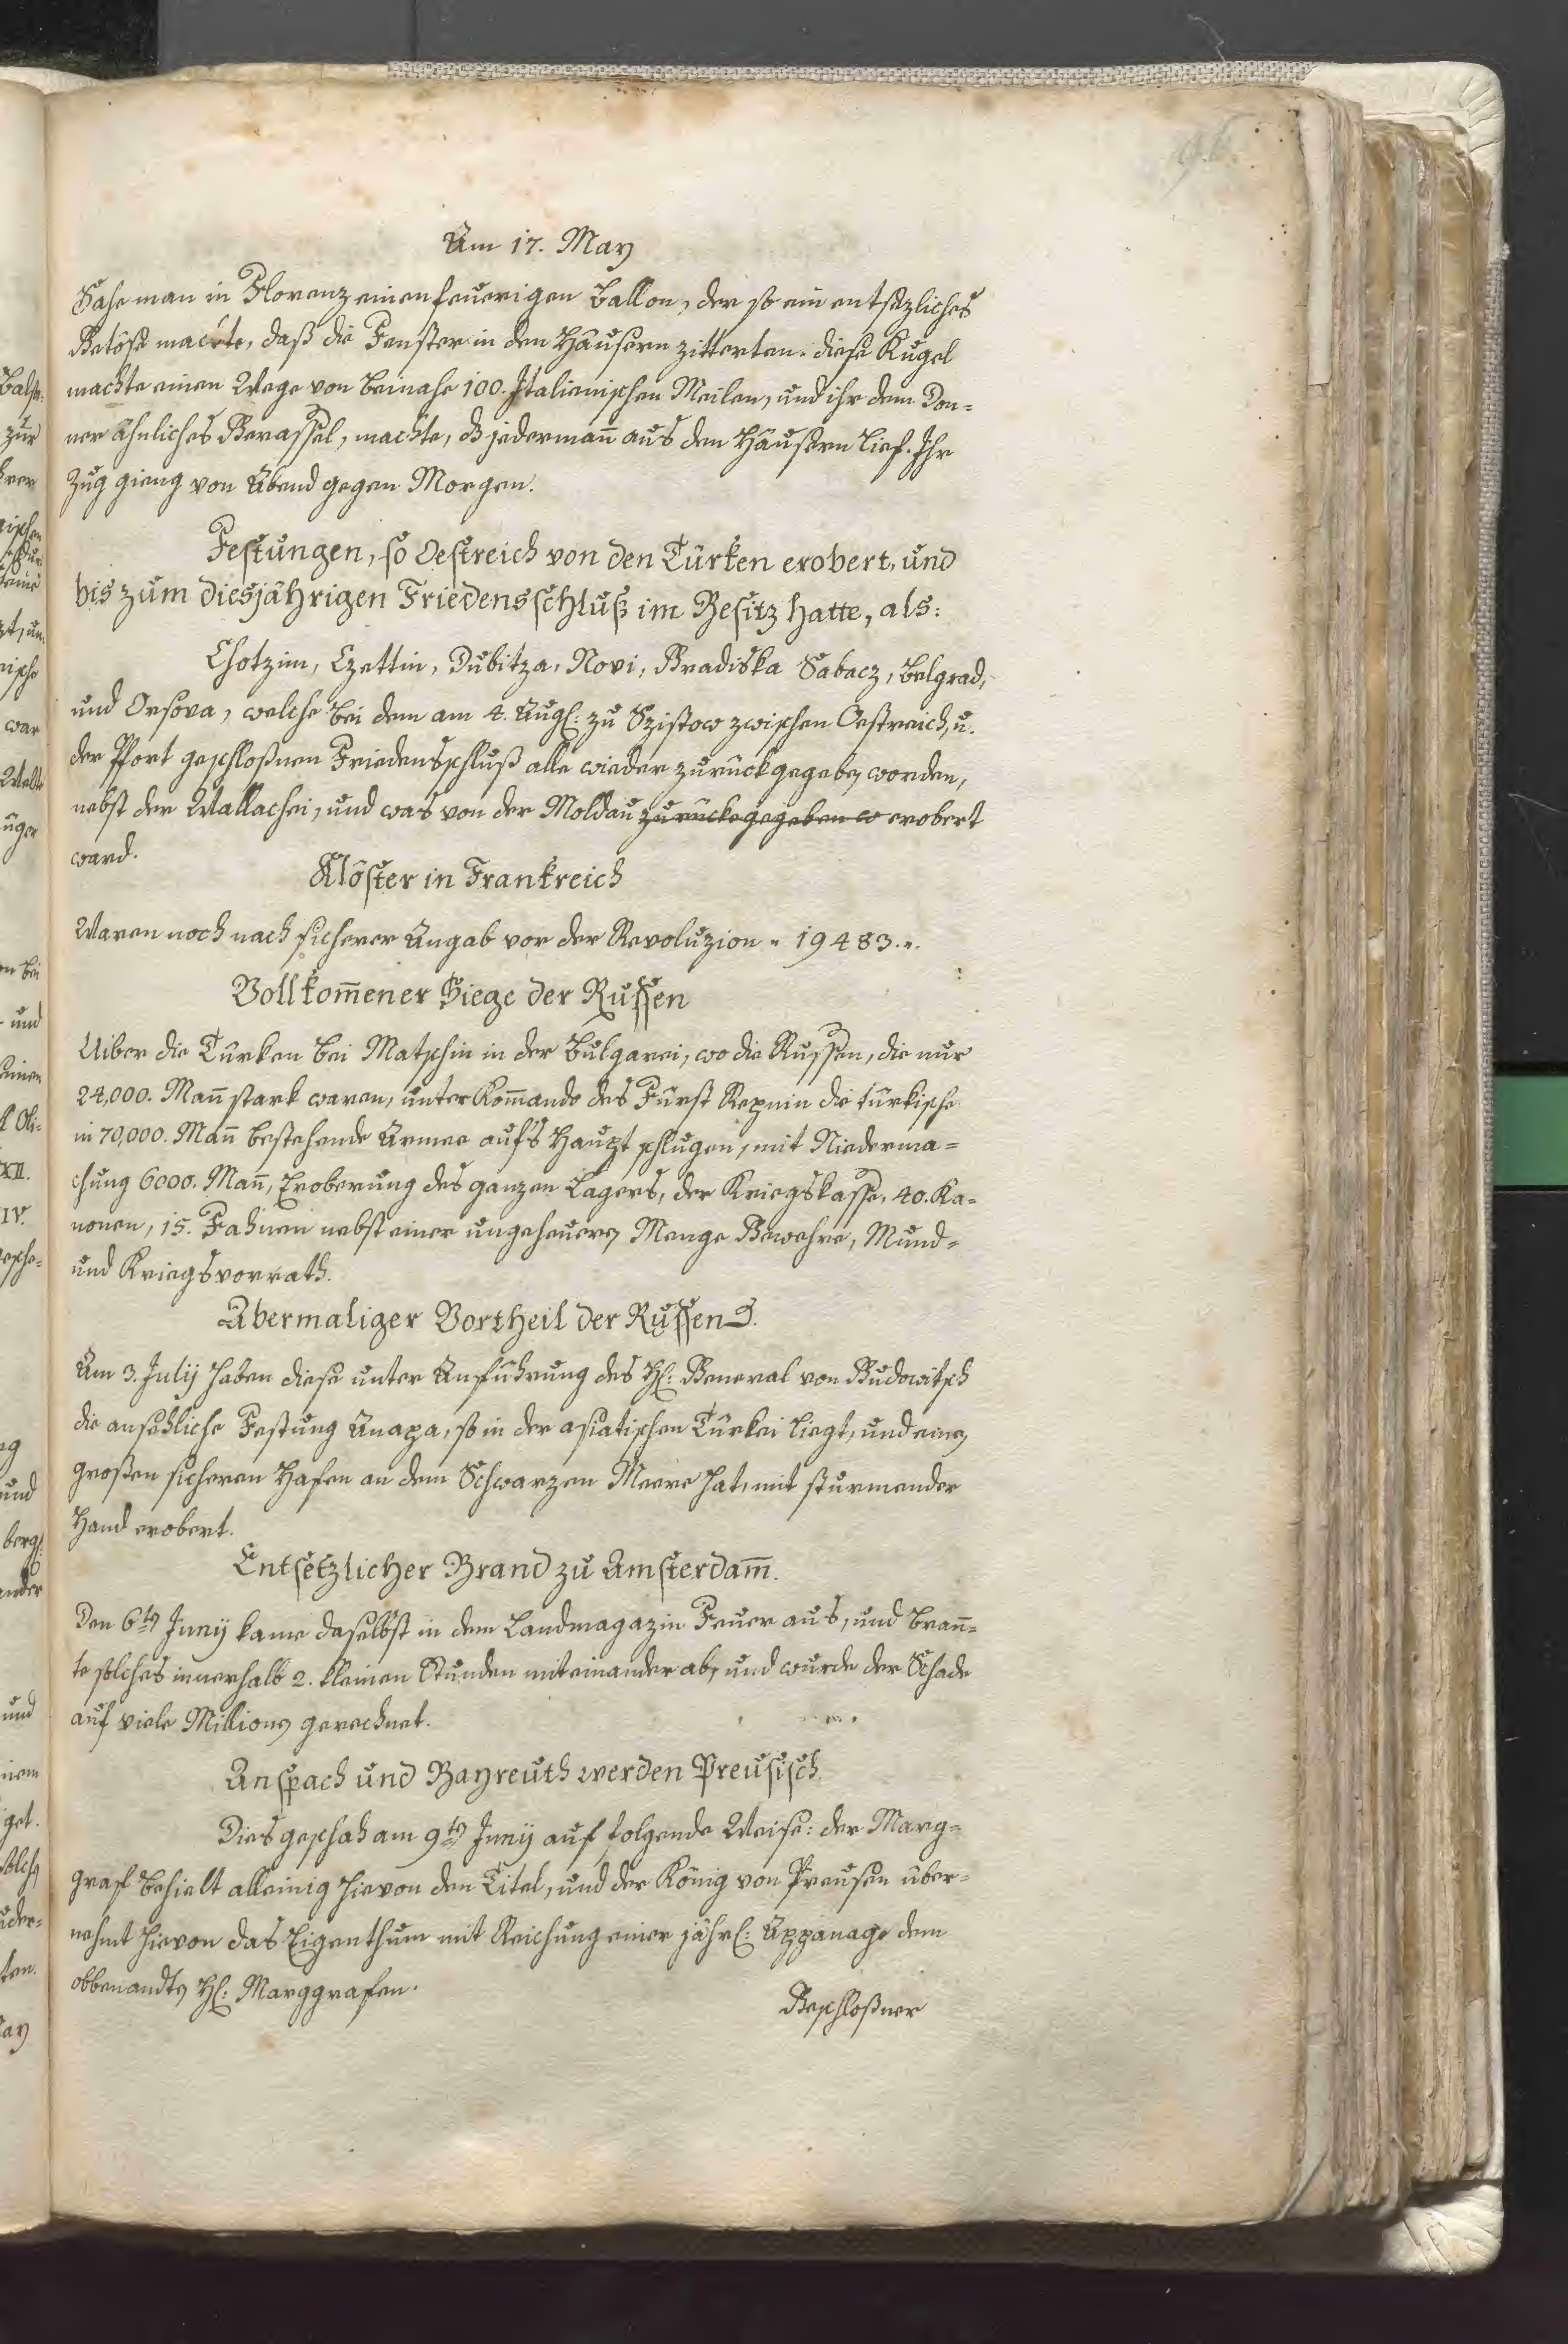 96.
Am 17. May
Sahe man in Florenz einen feuerigen Ballon, der so ein entsezliches
Getöse machte, daß die Fenster in den Häusern zitterten. diese Kugel
machte einen Wege von beinahe 100. Italienischen Meilen, und ihr dem Don=
ner ähnliches Gerassel, machte, dß jedermañ aus den Häusern lief. Ihr
Zug gieng von Abend gegen Morgen.
Festungen, so Oestreich von den Türken erobert, und
bis zum diesjährigen Friedensschluß im Besitz hatte, als:
Chotzim, Czettin, Dubitza, Novi, Gradiska Sabacz, Belgrad,
und Orsova, welche bei dem am 4. Augl: zu Szistow zwischen Oestreich, u.
der Pfort geschloßnen Friedensschluß alle wieder zurückgegeben worden,
nebst der Wallachei, und was von der Moldau zurückegegeben w erobert
ward.
Klöster in Frankreich
Waren noch nach sicherer Angab vor der Revoluzion " 19483.".
Vollkom̃ener Siege der Russen
Uiber die Türken bei Matschin in der Bulgarei, wo die Russen, die nur
24,000. Mañ stark waren, unter Kom̃ando des Fürst Repnin die türkische
in 70,000. Mañ bestehende Armee auf's Haupt schlugen, mit Niederma=
chung 6000. Mañ, Eroberung des ganzen Lagers, der Kriegskasse, 40. Ka=
nonen, 15. Fahnen nebst einer ungeheuern Menge Gewehre, Mund=
und Kriegsvorrath.
Abermaliger Vortheil der Russen
Am 3. Julij haben diese unter Anführung des Hl: General von Gudowitsch
die ansehliche Festung Anapa, so in der asiatischen Türkei liegt, und einen
großen sicheren Hafen an dem Schwarzen Meere hat, mit sturmender
Hand erobert.
Entsetzlicher Brand zu Amsterdam̃.
Den 6ten Junij kame daselbst in dem Landmagazin Feuer aus, und brañ=
te solches innerhalb 2. kleinen Stunden miteinander ab, und wurde der Schade
auf viele Millionen gerechnet.
Anspach und Bayreuth werden Preusisch.
Dies geschah am 9ten Junij auf folgende Weise: der Marg=
graf behielt alleinig hievon den Titel, und der König von Preusen über=
nehmt hievon das Eigenthum mit Reichung einer jährl: Appanage dem
obbenandten Hl: Marggrafen.
Geschloßner